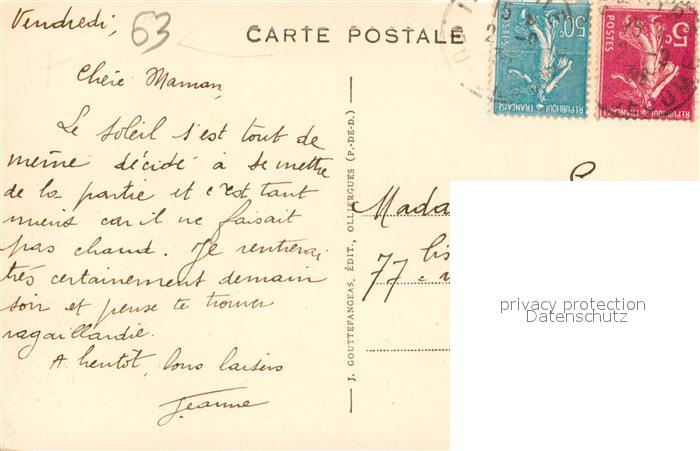 Vendredi,
63
CARTE POSTALE
Chère Maman,
Le soleil s'est tout de
même décidé à se mettre
de la partie et c'est tant
mieux car il ne faisait
pas chaud. Je rentrerai
très certainement demain
soir et pense te trouver
ragaillardie.
A bientôt, bons baisers
Jeanne
J. GOUTTEFANGEAS, ÉDIT., OLLIERGUES (P.-DE-D.)
50c
POSTES
REPUBLIQUE FRANÇAISE
5c
POSTES
REPUBLIQUE FRANÇAISE
Mada
77 bis
privacy protection
Datenschutz